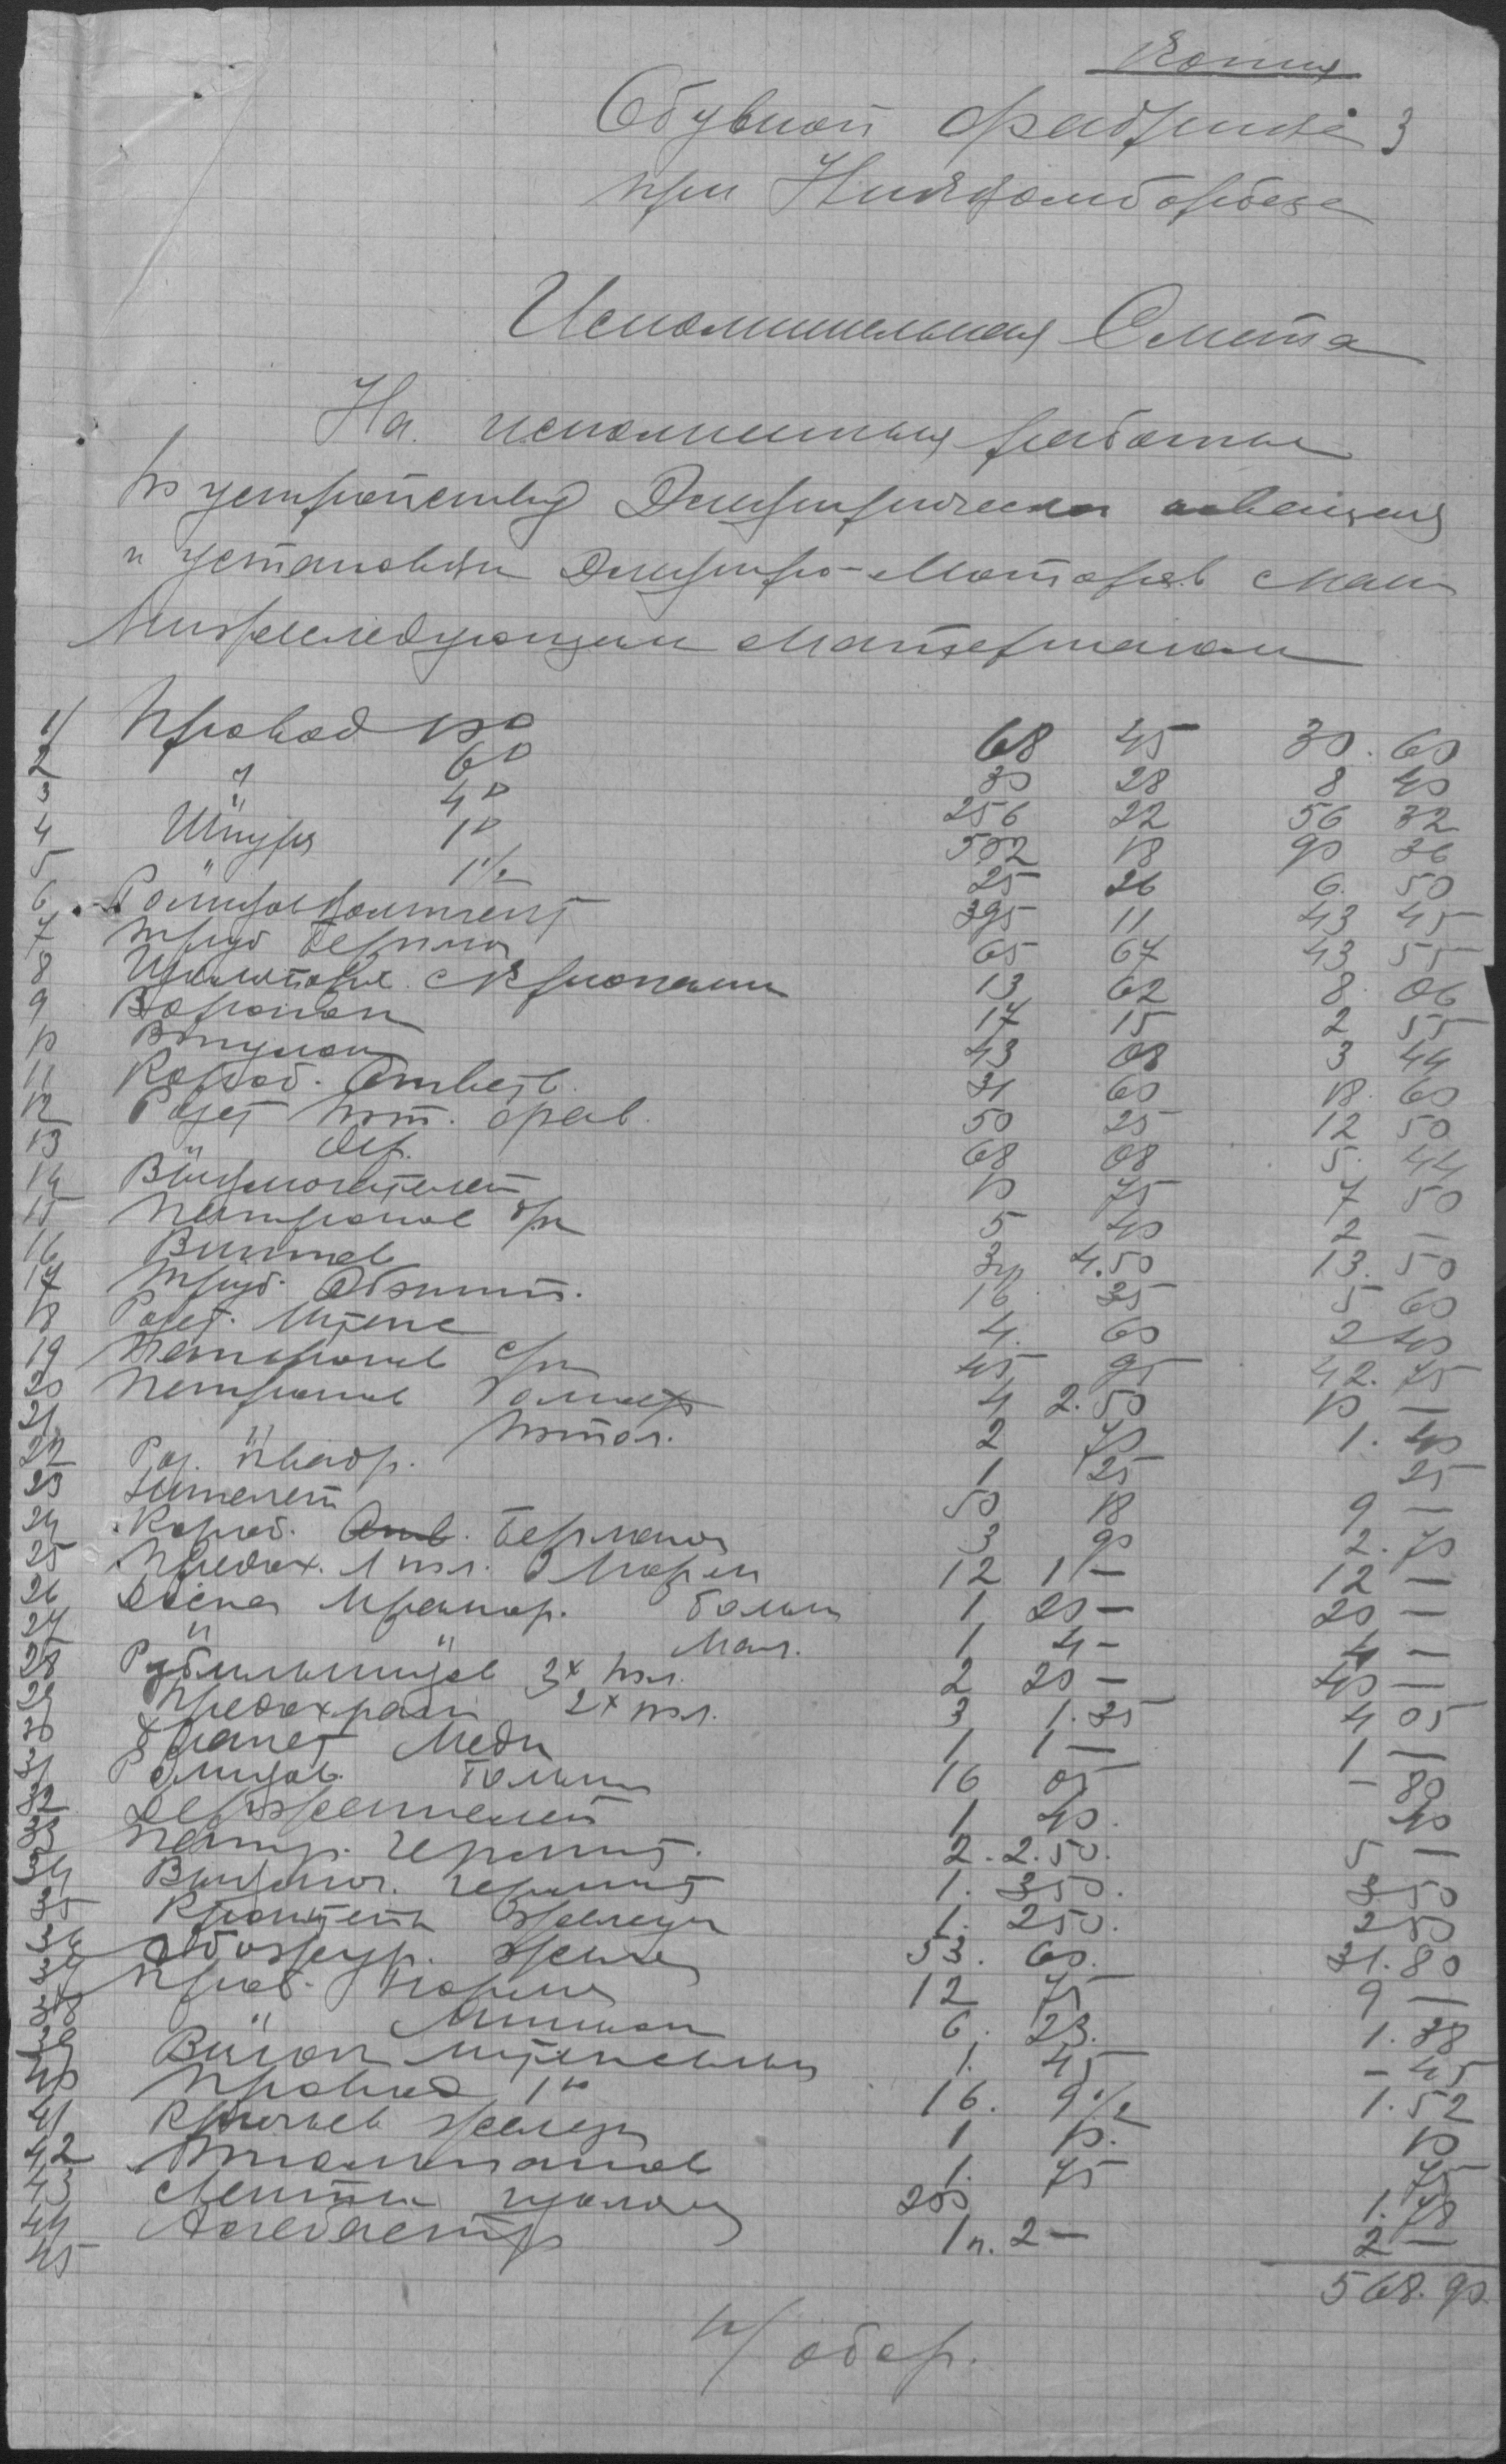 Копия
Обувной фабрике 3
при
Исполнительная Смета
На исполненныя работы
по устройству Электрическа освещения
и установки Электро-Моторов с
нижеследующим Материалом
1/ Провод 10° 68 45 30.60
2 " 6° 30 28 8 40
3 " 4° 256 22 56 32
4 Шнура 1° 502 18 90 36
5 " 1½ 25 26 6.50
6 Роликов 395 11 43 45
7 Труб Бергмана 65 67 43 55
8 Изоляторов с Крюками 13 62 8.06
9 Воронок 17 15 2 55
10 Втулок 43 08 3 44
11 Короб. Ответв. 31 60 18.60
12 Розет пот. фев. 50 25 12 50
13 " Дер. 68 08 5.44
14 Выключателей 10 75 7 50
15 Патронов 5 40 2 —
16 Винтов 3 4.50 13.50
17 Труб. 16 35 5 60
18 Розет. Штепс 4. 60 2 40
19 Патронов 45 95 42.75
20 Патронов 4 2.50 10 —
21 " потол. 2 70 1.40
22 Роз. квадр. 1 25 25
23 50 18 9 —
24 Короб. Отв. Бергмана 3 90 2.70
25 Предох. 1 пол. 12 1 — 12 —
26 Доска Мрамор. больш 1 20 — 20 —
27 " " мал. 1 4 — 4 —
28 Рубильников 3х пол. 2 20 — 40 —
29 Предохран 2х пол. 3 1.35 4 05
30 Меди 1 1 — 1 —
31 Роликов больших 16 05 — 80
32 Держателей 1 40. 40
33 Патр. Гермет. 2. 2.50. 5 —
34 Выключ. Гермет 1. 350. 3 50
35 Кронштейн железн 1. 250. 2 50
36 Абажур. 53. 60. 31.80
37 Проб. 12 75 9 —
38 " 6. 23. 1.38
39 Вилок штепсельн 1. 45 — 45
40 Провод 1° 16. 9½ 1.52
41 Крючьев железн 1 10. 10
42 1. 75 75
43 Ленты 200 1.78
44 Алебастр 1 п. 2 — 2 —
45
568.90
н/ обор.